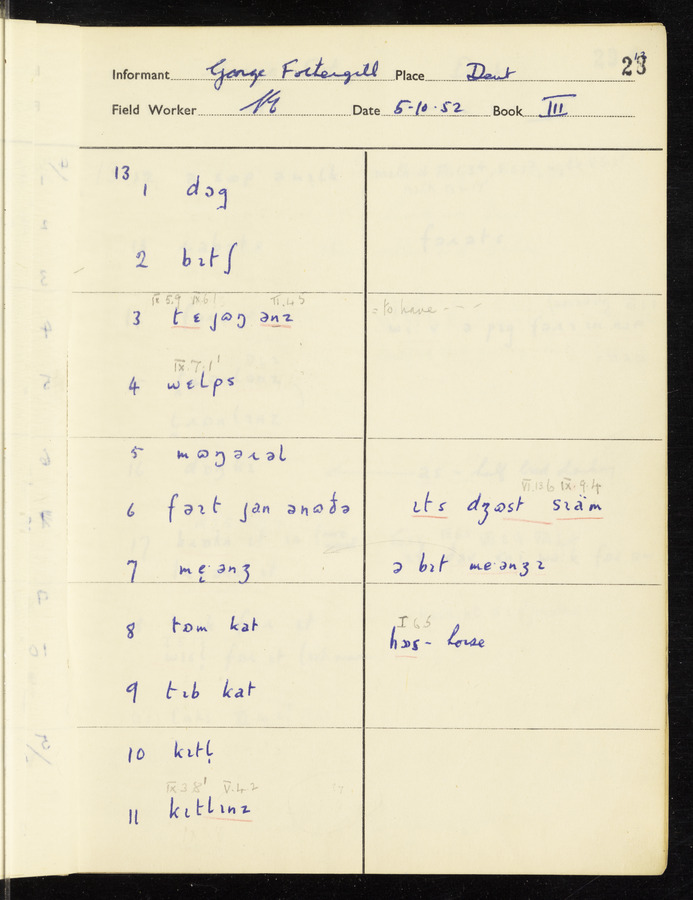 23
Informant George Fothergill Place Dent
Field Worker Date 5-10-52 Book III
13
1 dɔg
2 bɪtʃ
IX 5.9 IX 6 1 VI.4.5
3 t ɛ jaŋ ənz = to have ---
IX.7.1'
4 wɛlps
5 mɷŋəɹəl
VI.13.6 IX.9.4
6 fəɪt jan anɷðə ɪts dʒɷst sɪäm
7 mę·ənʒ ə bɪt me·ənʒɪ
I 6 5
8 tɒm kat hɒs - horse
9 tɪb kat
10 kɪtl̩
IX 3 8' V.4.2
11 kɪtlɪnz